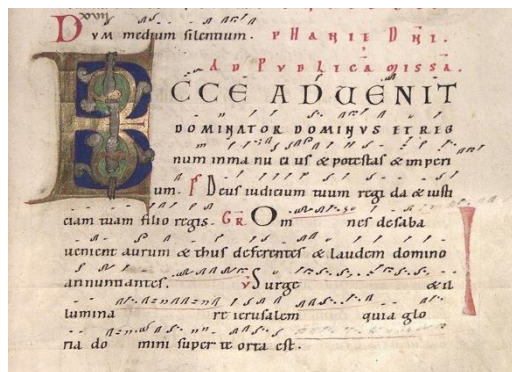 Dum medium silentium. PHANIE DNI.
AD PUBLICA MISSA.
ECCE ADUENIT
DOMINATOR DOMINVS ET REG
num in ma nu ei us & potestas & inperi
um. P Deus iudicium tuum regi da & iusti
ciam tuam filio regis. GR Om nes de saba
uenient aurum & thus deferentes & laudem domino
annuntiantes. V Surge & il
lumina re ierusalem quia glo
ria do mini super te orta est.